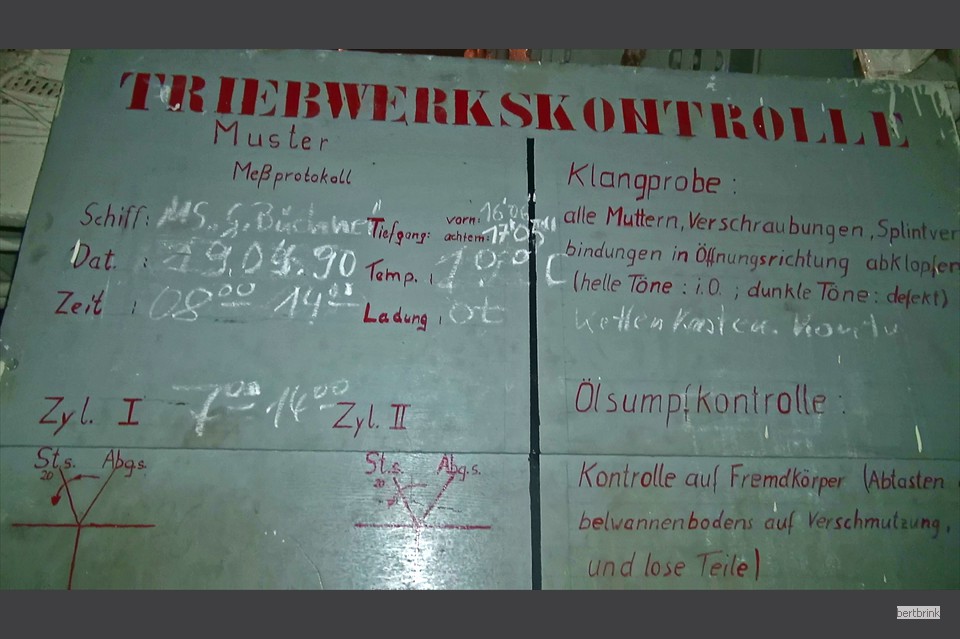 TRIEBWERKSKONTROLLE
Muster
Meßprotokoll
Schiff: MS. G. Büchner"
Tiefgang: vorn:
achtern:
Dat. :
Temp. :
Zeit : 08 00 14
Ladung :
Zyl. I 7 00 14 00 Zyl. II
St.s. Abg.s.
20
St.s. Abg.s.
20
Klangprobe :
alle Muttern, Verschraubungen, Splintver
bindungen in Öffnungsrichtung abklopfen
(helle Töne : i.O. ; dunkle Töne : defekt)
Ölsumpfkontrolle :
Kontrolle auf Fremdkörper (Abtasten
belwannenbodens auf Verschmutzung,
und lose Teile)
bertbrink